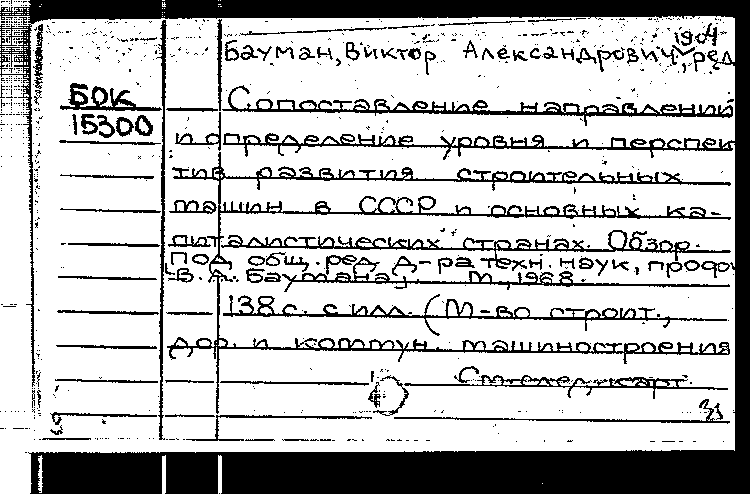 1904
Бауман, Виктор Александрович, ред
БОК
15300
Сопоставление направлений
и определение уровня и перспек
тив развития строительных
машин в СССР и основных ка-
питалистических странах. Обзор.
Под общ. ред. д-ра техн. наук, проф.
В.А. Баумана]. М., 1968.
138 с. с илл. (М-во строит.,
дор. и коммун. машиностроения
См. след. карт.